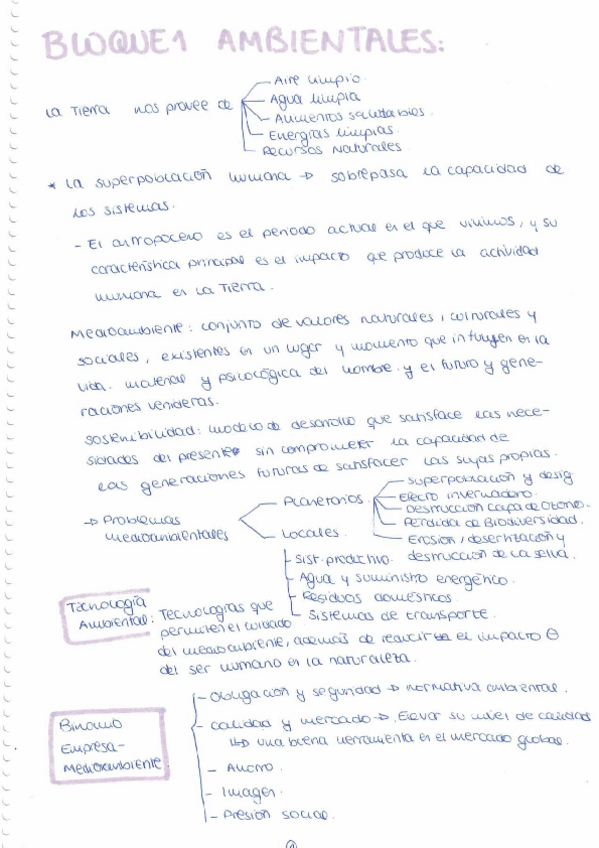 BLOQUE 1 AMBIENTALES:
La Tierra nos provee de
Aire limpio.
Agua limpia
Alimentos saludables.
Energías limpias.
Recursos Naturales.
* La superpoblación humana → sobrepasa la capacidad de
los sistemas.
- El antropoceno es el periodo actual en el que vivimos, y su
característica principal es el impacto que produce la actividad
humana en la Tierra.
Medioambiente: conjunto de valores naturales, culturales y
sociales, existentes en un lugar y momento que influyen en la
vida material y psicológica del hombre y el futuro y gene-
raciones venideras.
Sostenibilidad: modelo de desarrollo que satisface las nece-
sidades del presente sin comprometer la capacidad de
las generaciones futuras de satisfacer las suyas propias.
→ Problemas
medioambientales
Planetarios
Superpoblación y desig.
Efecto invernadero.
Destrucción capa de Ozono.
Pérdida de Biodiversidad.
Erosión / desertización y
destrucción de la selva.
Locales.
- Sist. productivo.
- Agua y suministro energético.
- Residuos domésticos.
- Sistemas de transporte.
Tecnología
Ambiental: Tecnologías que
permiten el cuidado
del medioambiente, además de reducir el impacto ⊖
del ser humano en la naturaleza.
Binomio
Empresa-
Medioambiente
- Obligación y seguridad → normativa ambiental.
- Calidad y mercado → Elevar su nivel de calidad
↳ una buena herramienta en el mercado global.
- Ahorro.
- Imagen.
- Presión social.
1